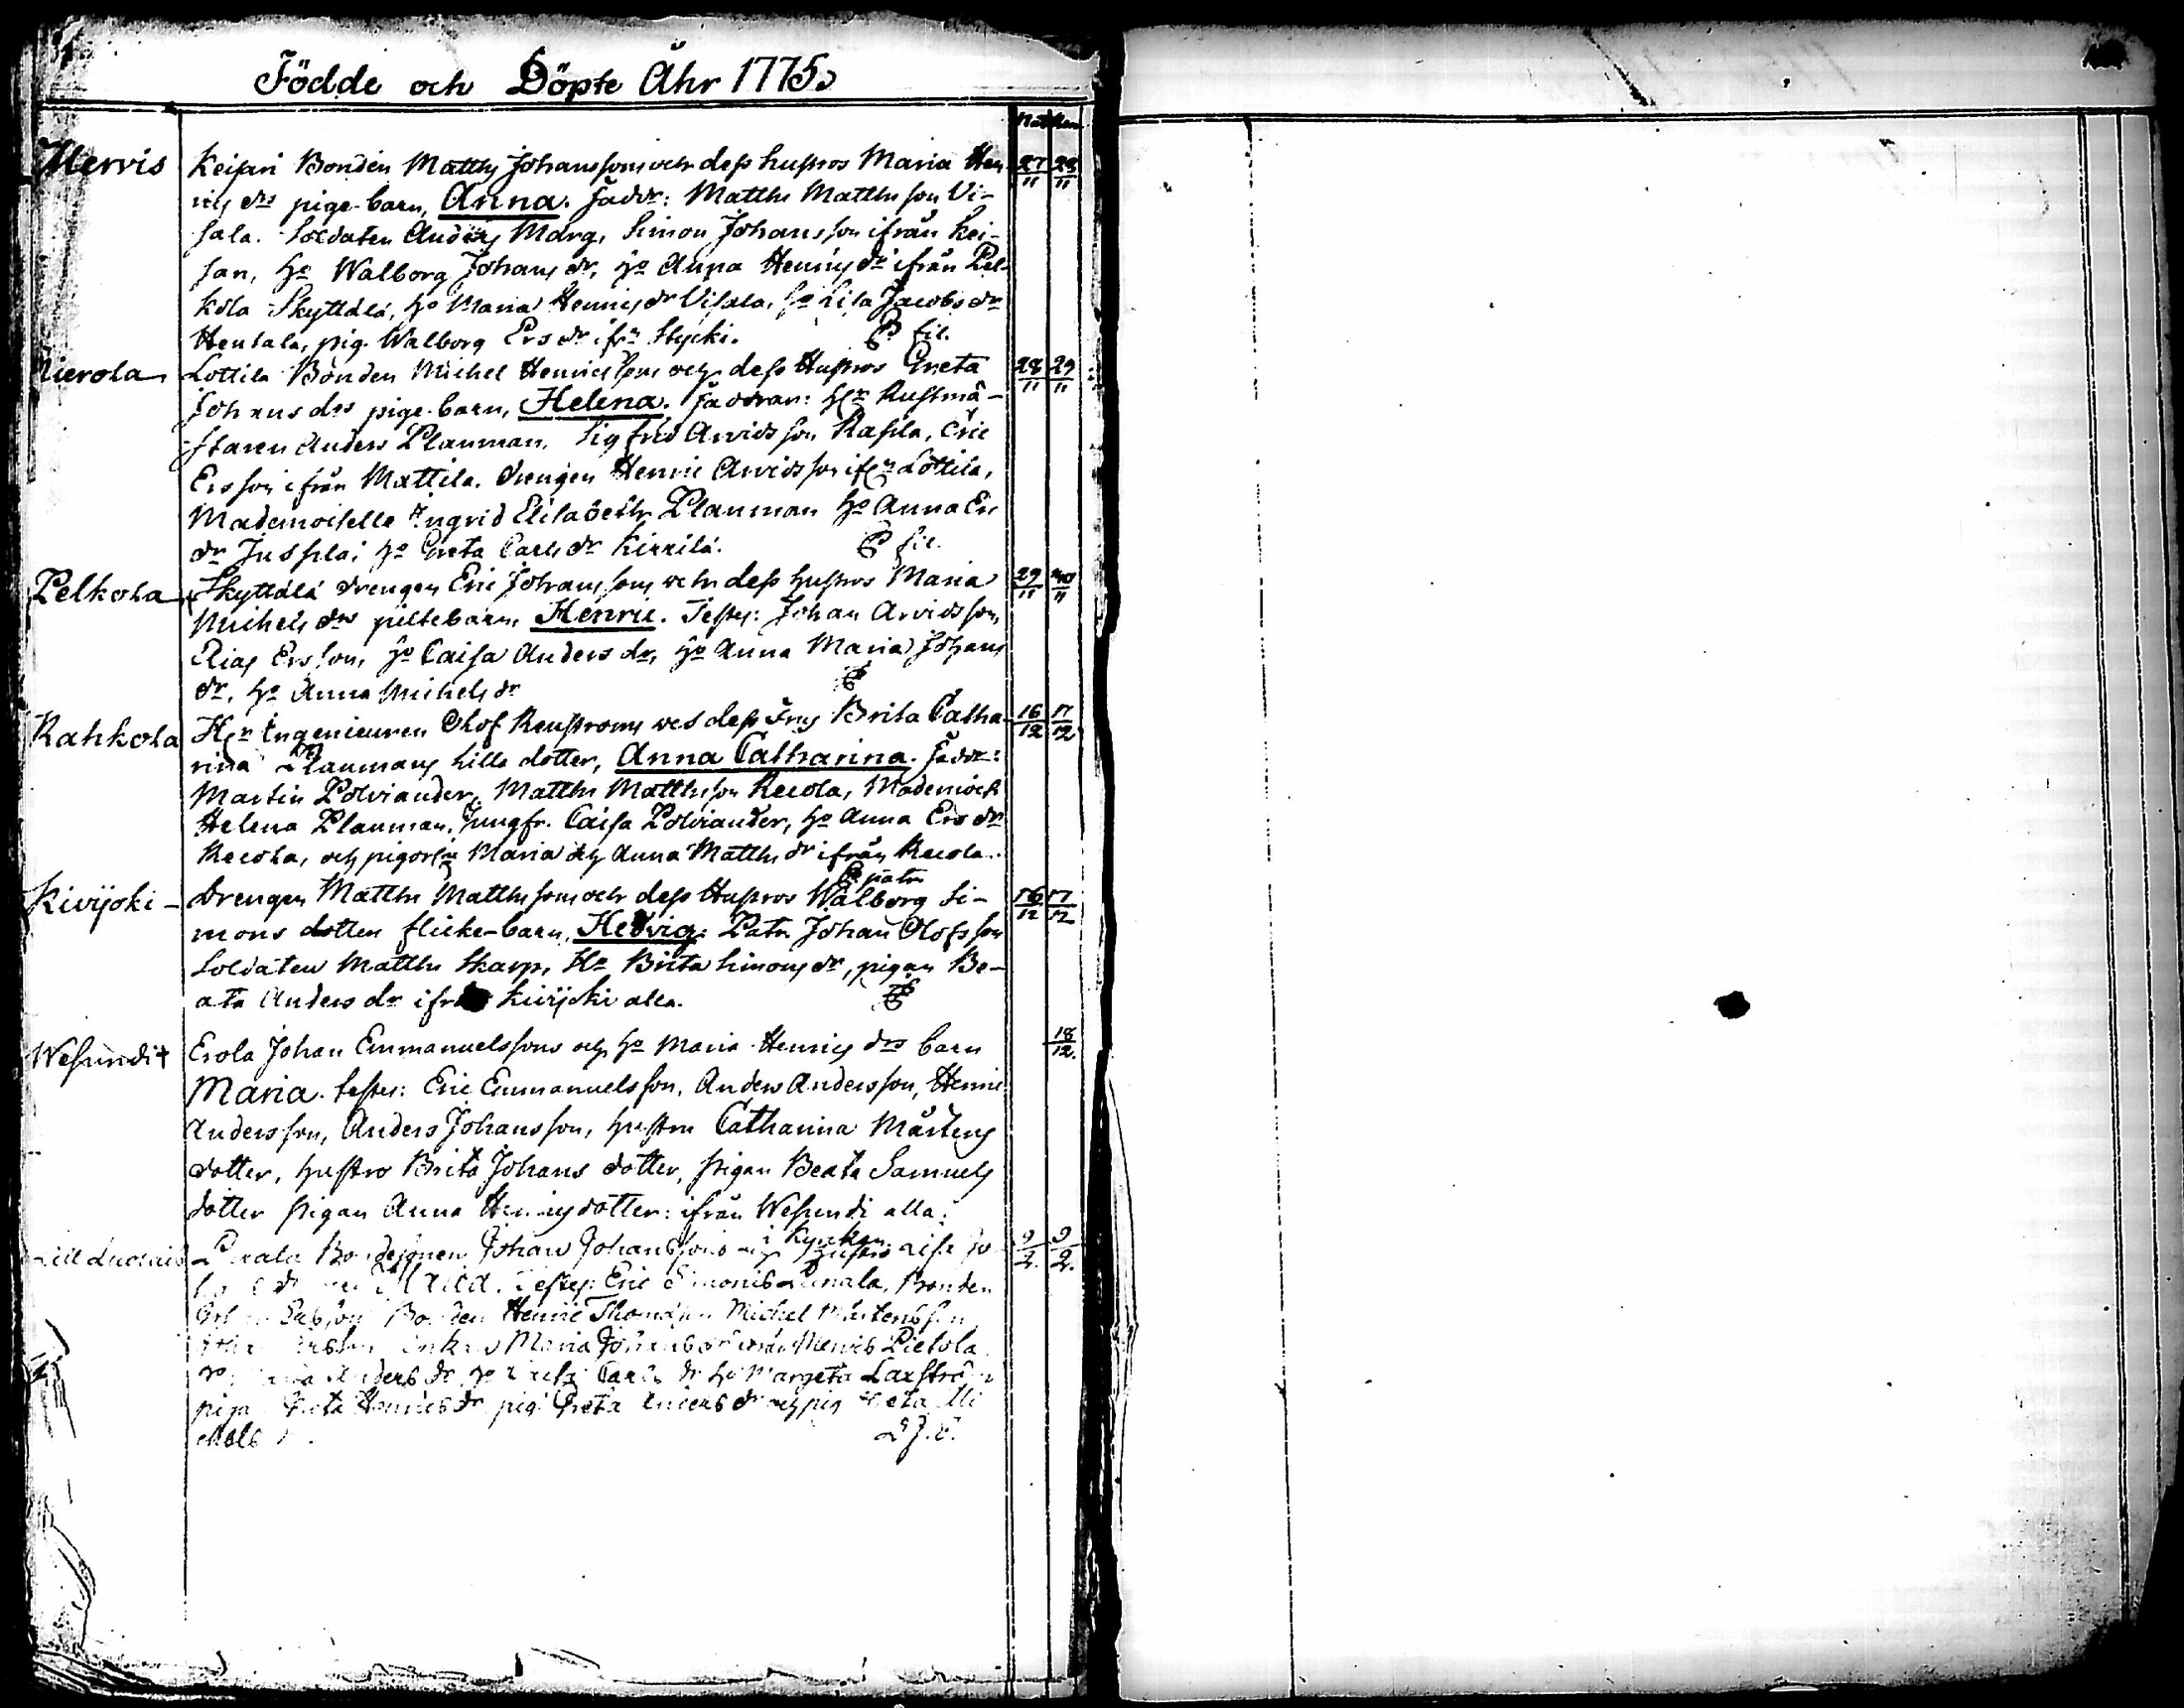 Födde och Döpte Åhr 1775.
Nat Ren
Mervis Keisari Bonden Matths Johanssons och dess hustros Maria Hen 27/11 28/11
rics drs pige-barn, Anna. Faddr: Matths Matthsson Vi-
sala. Soldaten Anders Marg, Simon Johansson ifrån Kei-
sari, Ho Walborg Johans dr, Ho Anna Henrics dr ifrån Pel-
kola Skyttälä, Ho Maria Henrics dr Visala, Ho Lisa Jacobs dr
Hentala, pig. Walborg Ers dr ifrn Stycki. fil.
Lottila Bonden Michel Henricssons och dess Hustros Greta 28/11 29/11
Johans drs pige-barn, Helena. Faddrar: Hr Rustmä-
staren Anders Planman. Sigfrid Arvidsson Rasila, Eric
Ersson ifrån Mattila. drengen Henric Arvidsson ifrn Lottila,
Mademoiselle Ingrid Elisabeth Planman Ho Anna Eri
dr Jussila, Ho Greta Carls dr Kirrilä. fil.
Pelkola Skyttälä drengen Eric Johanssons och dess hustros Maria 29/11 30/11
Michels drs piltebarn, Henric. Testes: Johan Arvidsson,
Elias Ersson, Ho Caisa Anders dr, Ho Anna Maria Johans
dr, Ho Anna Michels dr
Rahkola Hr Ingenieuren Olof Renstroms och dess Frus Brita Catha- 16/12 17/12
rina Planmans lilla dotter, Anna Catharina. Faddr:
Martin Polviander, Matths Matthsson Recola, Mademois
Helena Planman, Jungfr. Caisa Polviander, Ho Anna Ers dr
Recola, och pigorne Maria och Anna Matths dr ifrån Recola.
patr
Kivijoki - Drengen Matths Matthssons och dess Hustros Walborg Si- 16/12 17/12
mons dotters flicke-barn, Hedvig: Patr. Johan Olofsson
Soldaten Matths Skarp, Ho Brita Simons dr, pigan Be-
ata Anders dr ifrån Kivijoki alla.
Wesundi Erola Johan Emmanuelssons och Ho Maria Henrics drs barn 18/12.
Maria. testes: Eric Emmanuelsson, Anders Andersson, Henric
Andersson, Anders Johansson, hustru Catharina Mårtens
dotter, hustro Brita Johans dotter, pigan Beata Samuels
dotter pigan Anna Henricsdotter: ifrån Wesundi alla.
i Kyrkan
Bondesonen Johan Johanssons och Hustro Lisa Jo 9/2. 9/2.
Testes: Eric Simonis Bonden
Bonden Henric Michel Mårtensson
Maria Johans dr ifrån Mervis Pietola
Anders dr Ho Caisa Carls dr Ho Margeta Laxström
piga Greta Henrics dr pig Greta Anders dr och pig Greta Mi
chels dr.